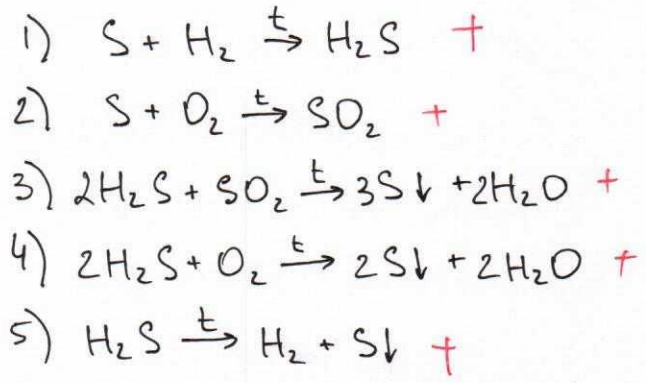 1) S + H₂ →ᵗ H₂S +
2) S + O₂ →ᵗ SO₂ +
3) 2H₂S + SO₂ →ᵗ 3S↓ + 2H₂O +
4) 2H₂S + O₂ →ᵗ 2S↓ + 2H₂O +
5) H₂S →ᵗ H₂ + S↓ +